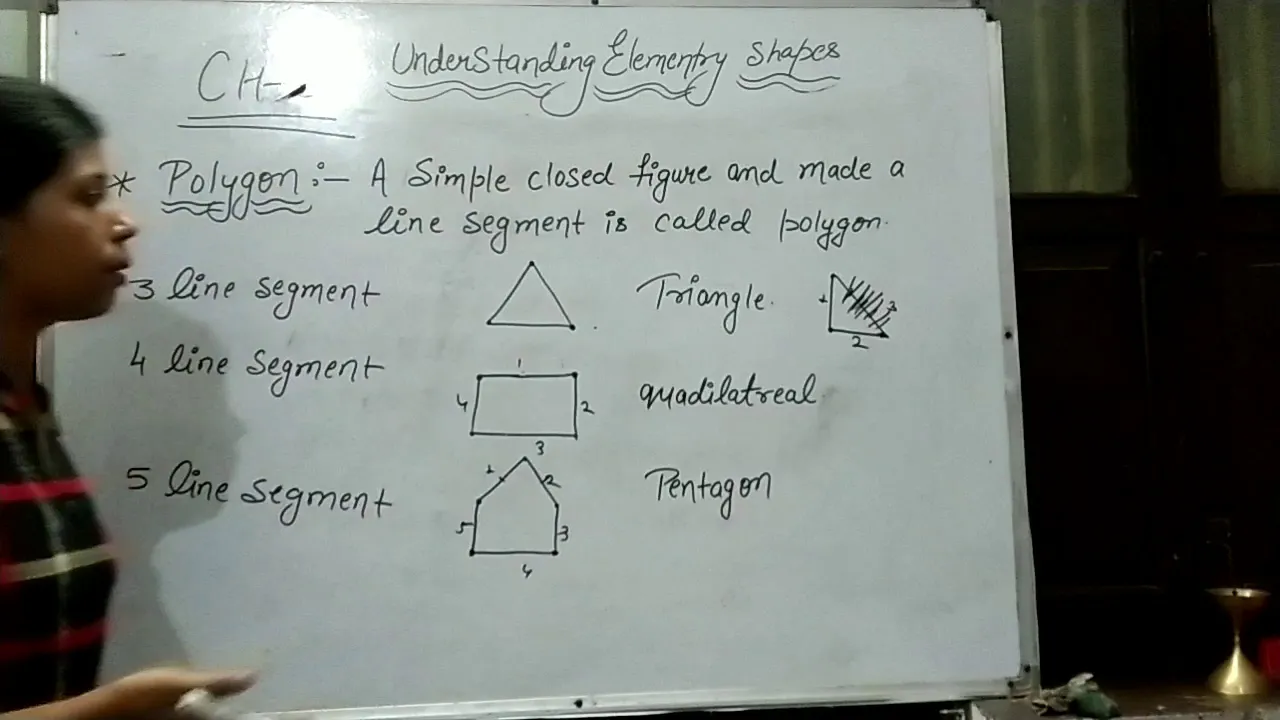 CH-
Understanding Elementry Shapes
* Polygon :- A Simple closed figure and made a
line segment is called polygon.
3 line segment Triangle. 2
4 line segment 1 2 3 4 quadilatreal
5 line segment 1 2 3 4 5 Pentagon